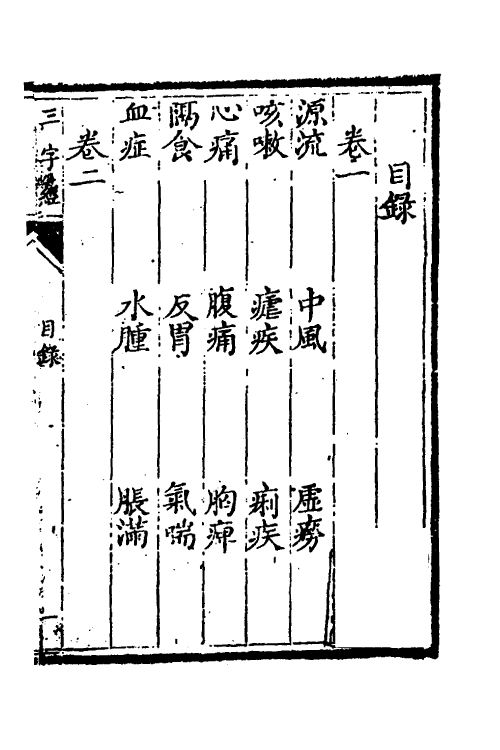 目録
卷一
源流　中風　虛癆
咳嗽　瘧疾　痢疾
心痛　腹痛　胸痺
隔食　反胃　氣喘
血症　水腫　脹滿
卷二
三字經　目録